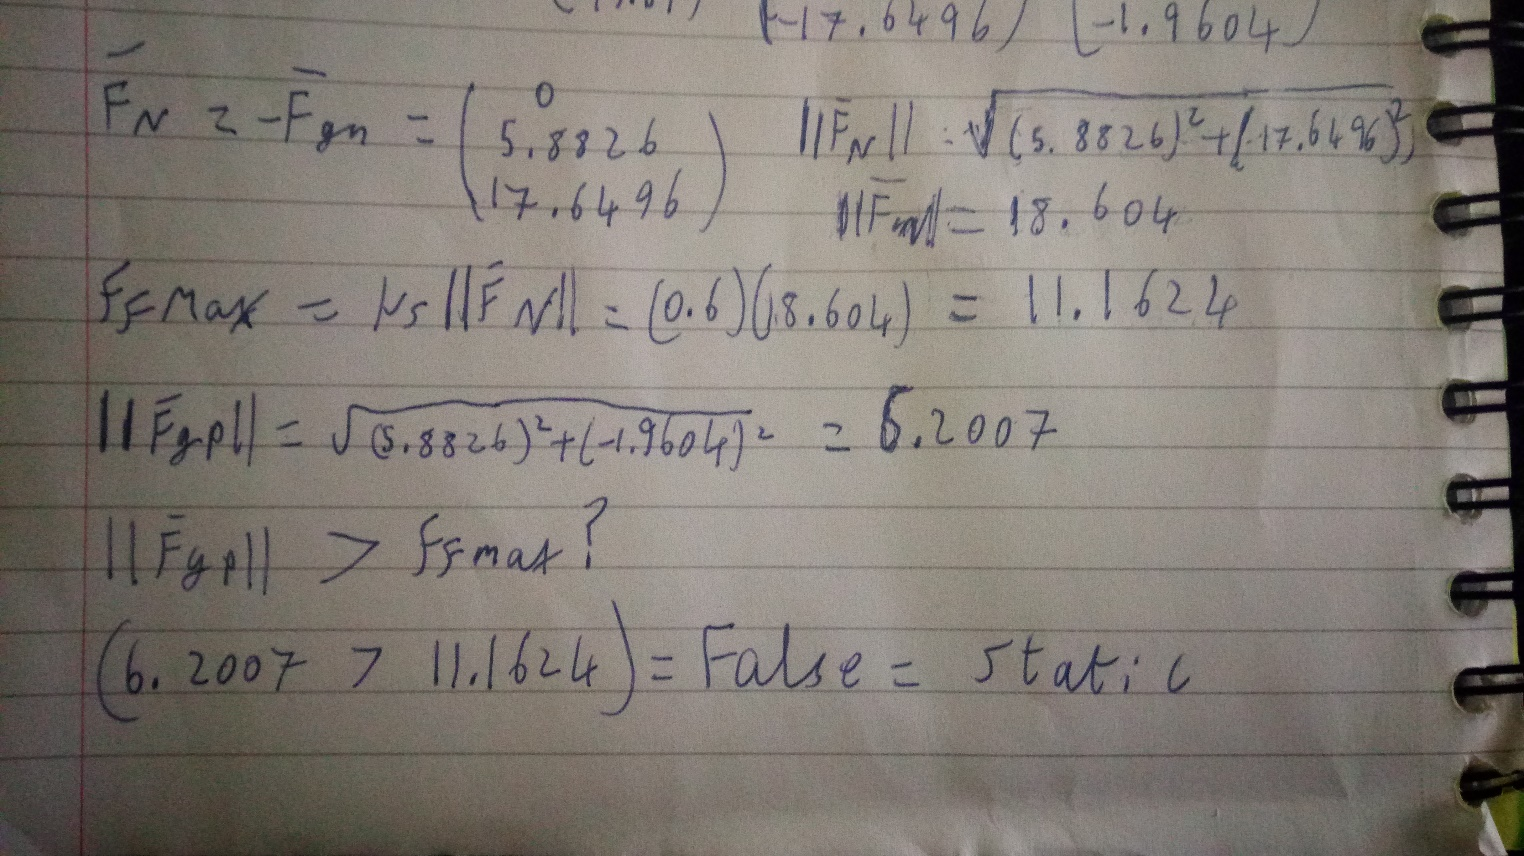 (-17.6496) (-1.9604)
F̄N = -F̄gn = (0 5.8826 17.6496) ||F̄N|| = √(5.8826)²+(17.6496)²
||F̄N|| = 18.604
Ff Max = μs ||F̄N|| = (0.6)(18.604) = 11.1624
||F̄gp|| = √(5.8826)²+(-1.9604)² = 6.2007
||F̄gp|| > Ff max?
(6.2007 > 11.1624) = False = Static